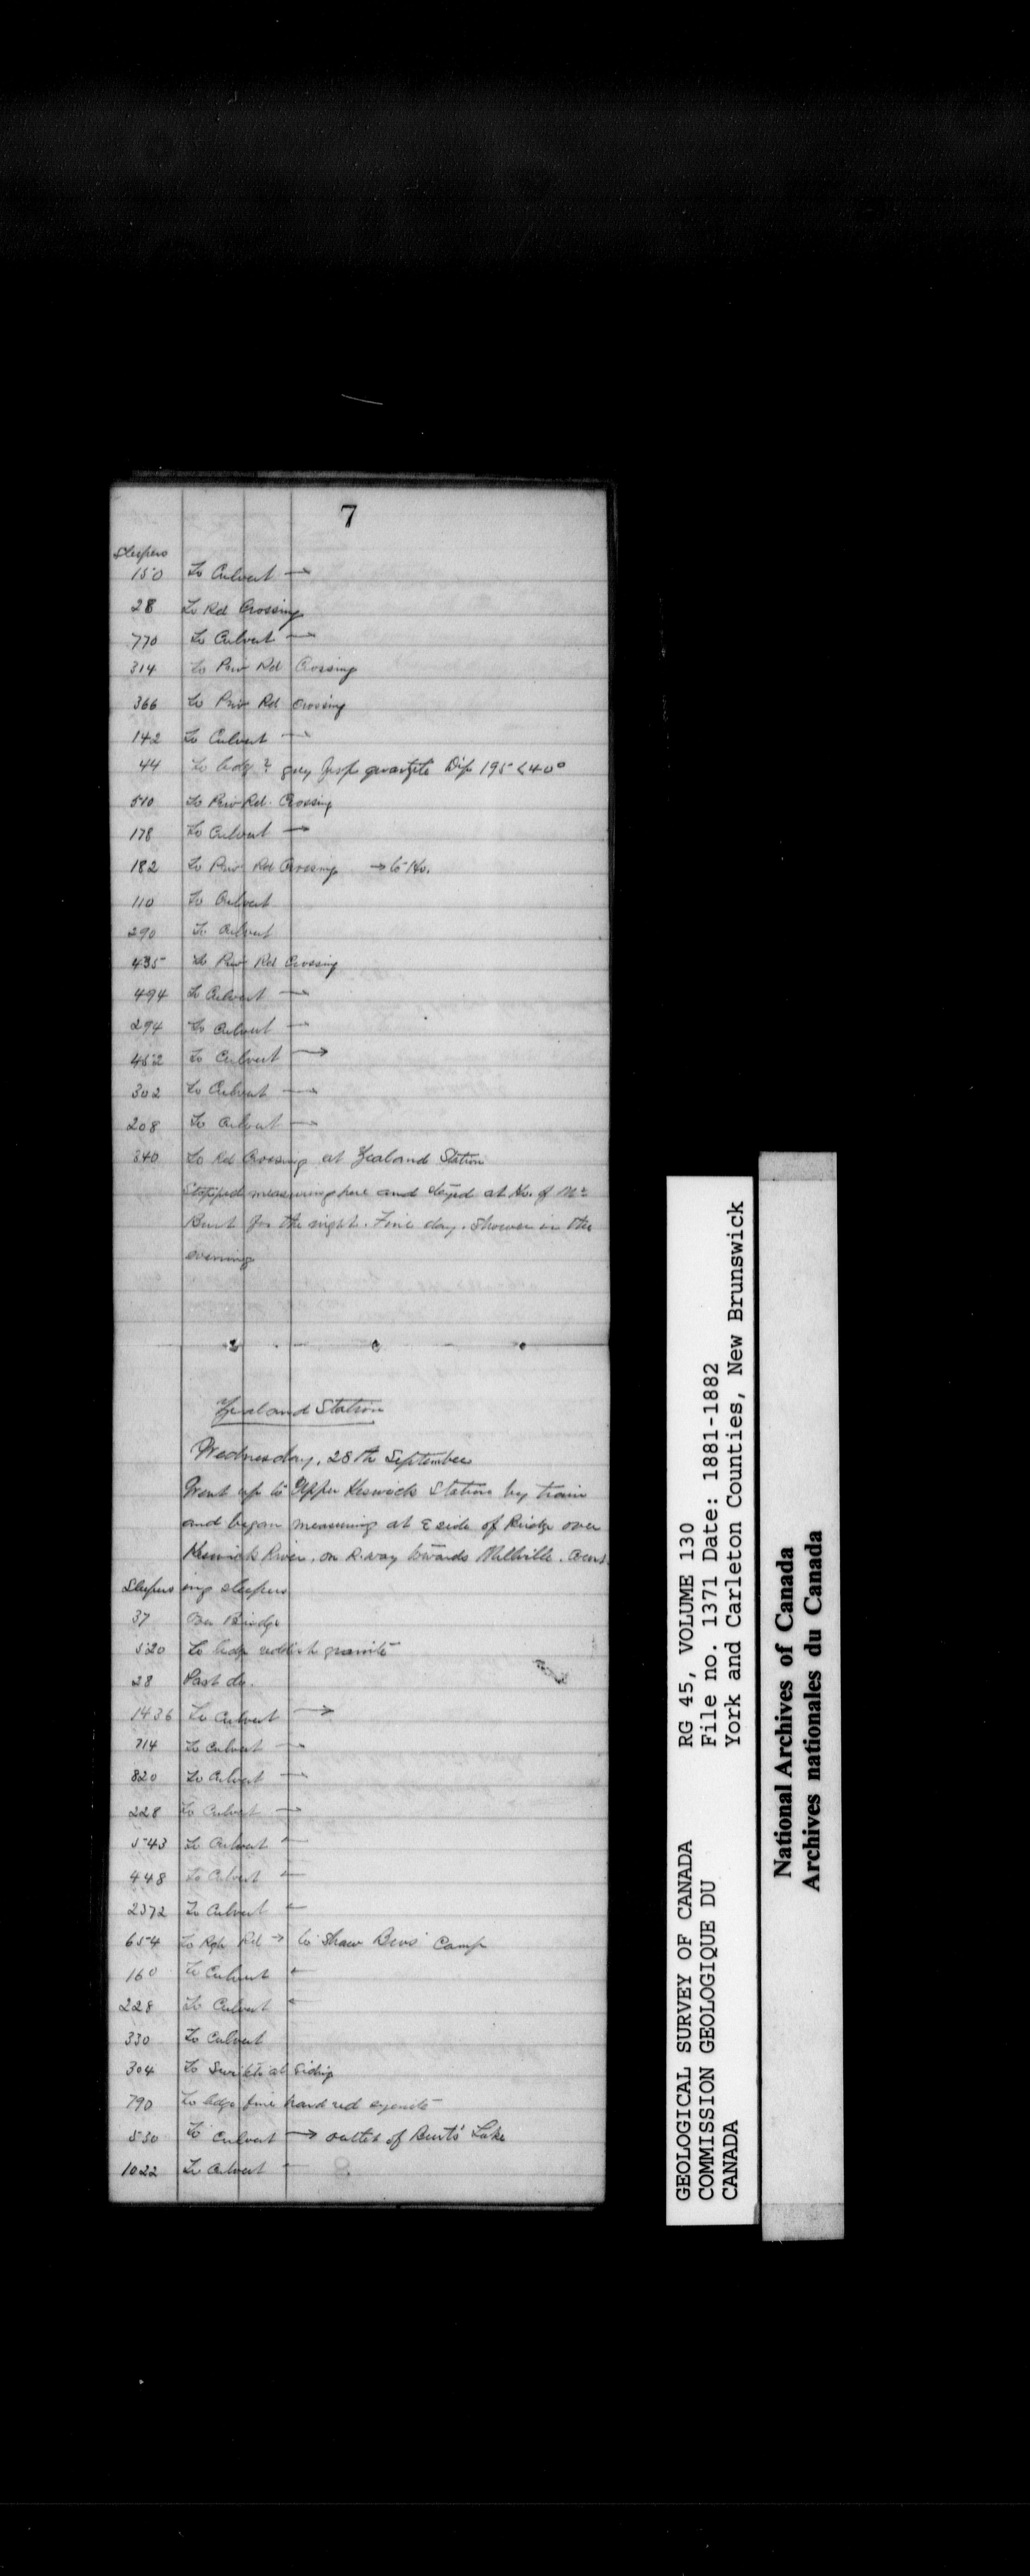 7
Sleepers
150 To Culvert →
28 To Rd Crossing
770 To Culvert →
314 To Priv Rd Crossing
366 To Priv Rd Crossing
142 To Culvert →
44 To ledge ? grey quartzite Dip 195 < 40°
510 To Priv Rd. Crossing
178 To Culvert →
182 To Priv Rd Crossing → to Ho.
110 To Culvert
290 To Culvert
435 To Priv Rd Crossing
494 To Culvert →
294 To Culvert →
452 To Culvert →
302 To Culvert →
208 To Culvert →
340 To Rd Crossing at Zealand Station
Stopped measuring here and stayed at Ho. of Mr
Burt for the night. Fine day. Shower in the
evening
Zealand Station
Wednesday, 28th September
Went up to Upper Keswick Station by train
and began measuring at E side of Bridge over
Keswick River, on R.way towards Millville. Count
Sleepers ing sleepers
37 Over Bridge
520 To ledge reddish granite
28 Past do.
1436 To Culvert →
714 To Culvert →
820 To Culvert →
228 To Culvert →
543 To Culvert ←
448 To Culvert ←
2372 To Culvert ←
654 To Rgh Rd → to Shaw Bros' Camp
160 To Culvert ←
228 To Culvert ←
330 To Culvert
304 To Switch at Siding
790 To ledge fine hard red syenite
530 To Culvert → outlet of Burt's Lake
1022 To Culvert ←
GEOLOGICAL SURVEY OF CANADA RG 45, VOLUME 130
COMMISSION GEOLOGIQUE DU File no. 1371 Date: 1881-1882
CANADA York and Carleton Counties, New Brunswick
National Archives of Canada
Archives nationales du Canada